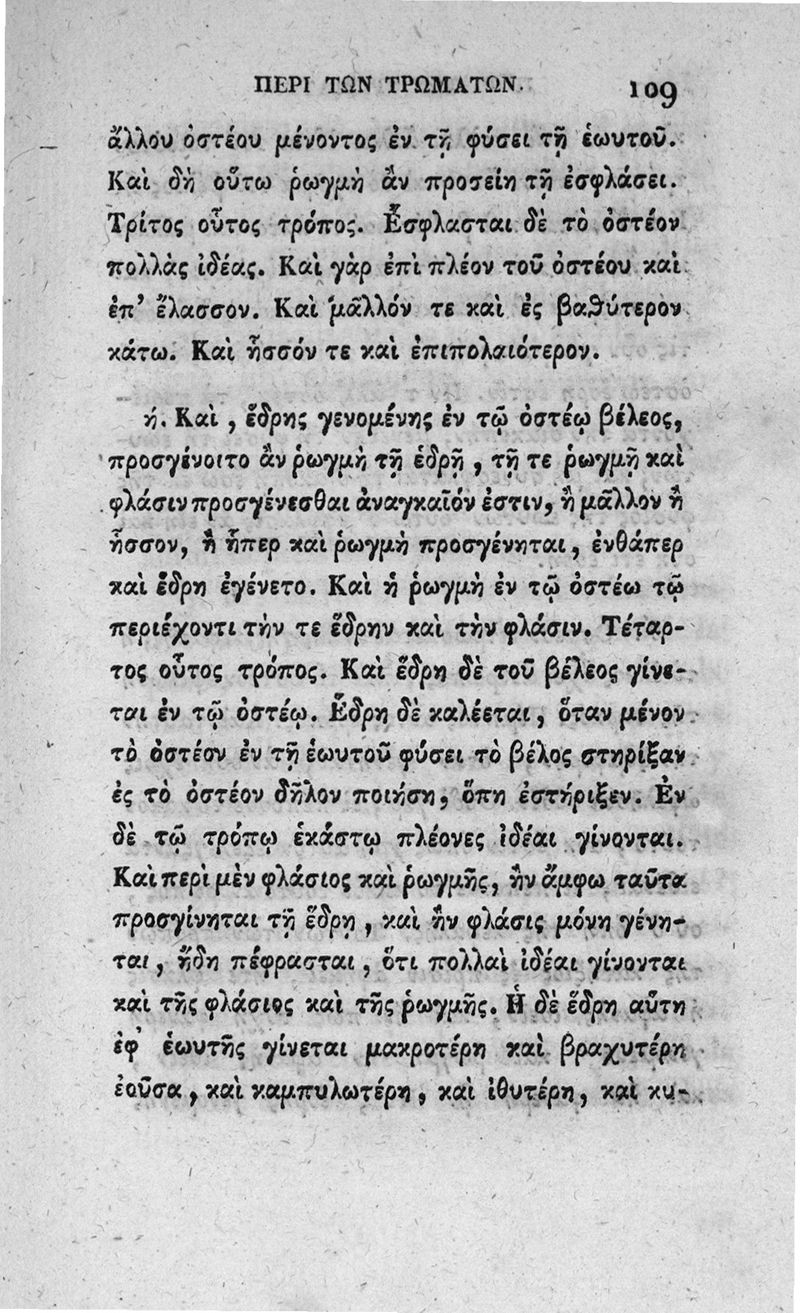 ΠΕΡΙ ΤΩΝ ΤΡΩΜΑΤΩΝ. 109
ἄλλου ὀστέου μένοντος ἐν τῇ φύσει τῇ ἑωυτοῦ.
Καὶ δὴ οὕτω ῥωγμὴ ἂν προσείη τῇ ἐσφλάσει.
Τρίτος οὗτος τρόπος. Ἔσφλασται δὲ τὸ ὀστέον
πολλὰς ἰδέας. Καὶ γὰρ ἐπὶ πλέον τοῦ ὀστέου καὶ
ἐπ’ ἔλασσον. Καὶ μᾶλλόν τε καὶ ἐς βαθύτερον
κάτω. Καὶ ἧσσόν τε καὶ ἐπιπολαιότερον.
ή. Καὶ, ἕδρης γενομένης ἐν τῷ ὀστέῳ βέλεος,
προσγένοιτο ἂν ῥωγμὴ τῇ ἑδρῇ, τῇ τε ῥωγμῇ καὶ
φλάσιν προσγένεσθαι ἀναγκαῖόν ἐστιν, ἢ μᾶλλον ἢ
ἧσσον, ἢ ἥπερ καὶ ῥωγμὴ προσγένηται, ἐνθάπερ
καὶ ἕδρη ἐγένετο. Καὶ ἡ ῥωγμὴ ἐν τῷ ὀστέω τῷ
περιέχοντι τὴν τε ἕδρην καὶ τὴν φλάσιν. Τέταρ-
τος οὗτος τρόπος. Καὶ ἕδρη δὲ τοῦ βέλεος γίνε-
ται ἐν τῷ ὀστέῳ. Ἕδρη δὲ καλέεται, ὅταν μένον
τὸ ὀστέον ἐν τῇ ἑωυτοῦ φύσει τὸ βέλος στηρίξαν
ἐς τὸ ὀστέον δῆλον ποιήσῃ, ὅπη ἐστήριξεν. Ἐν
δὲ τῷ τρόπῳ ἑκάστῳ πλέονες ἰδέαι γίνονται.
Καὶ περὶ μὲν φλάσιος καὶ ῥωγμῆς, ἢν ἄμφω ταῦτα
προσγίνηται τῇ ἕδρῃ, καὶ ἢν φλάσις μόνη γένη-
ται, ἤδη πέφρασται, ὅτι πολλαὶ ἰδέαι γίνονται
καὶ τῆς φλάσιος καὶ τῆς ῥωγμῆς. Ἡ δὲ ἕδρη αὕτη
ἐφ’ ἑωυτῆς γίνεται μακροτέρη καὶ βραχυτέρη
ἐοῦσα, καὶ καμπυλωτέρη, καὶ ἰθυτέρη, καὶ κυ-